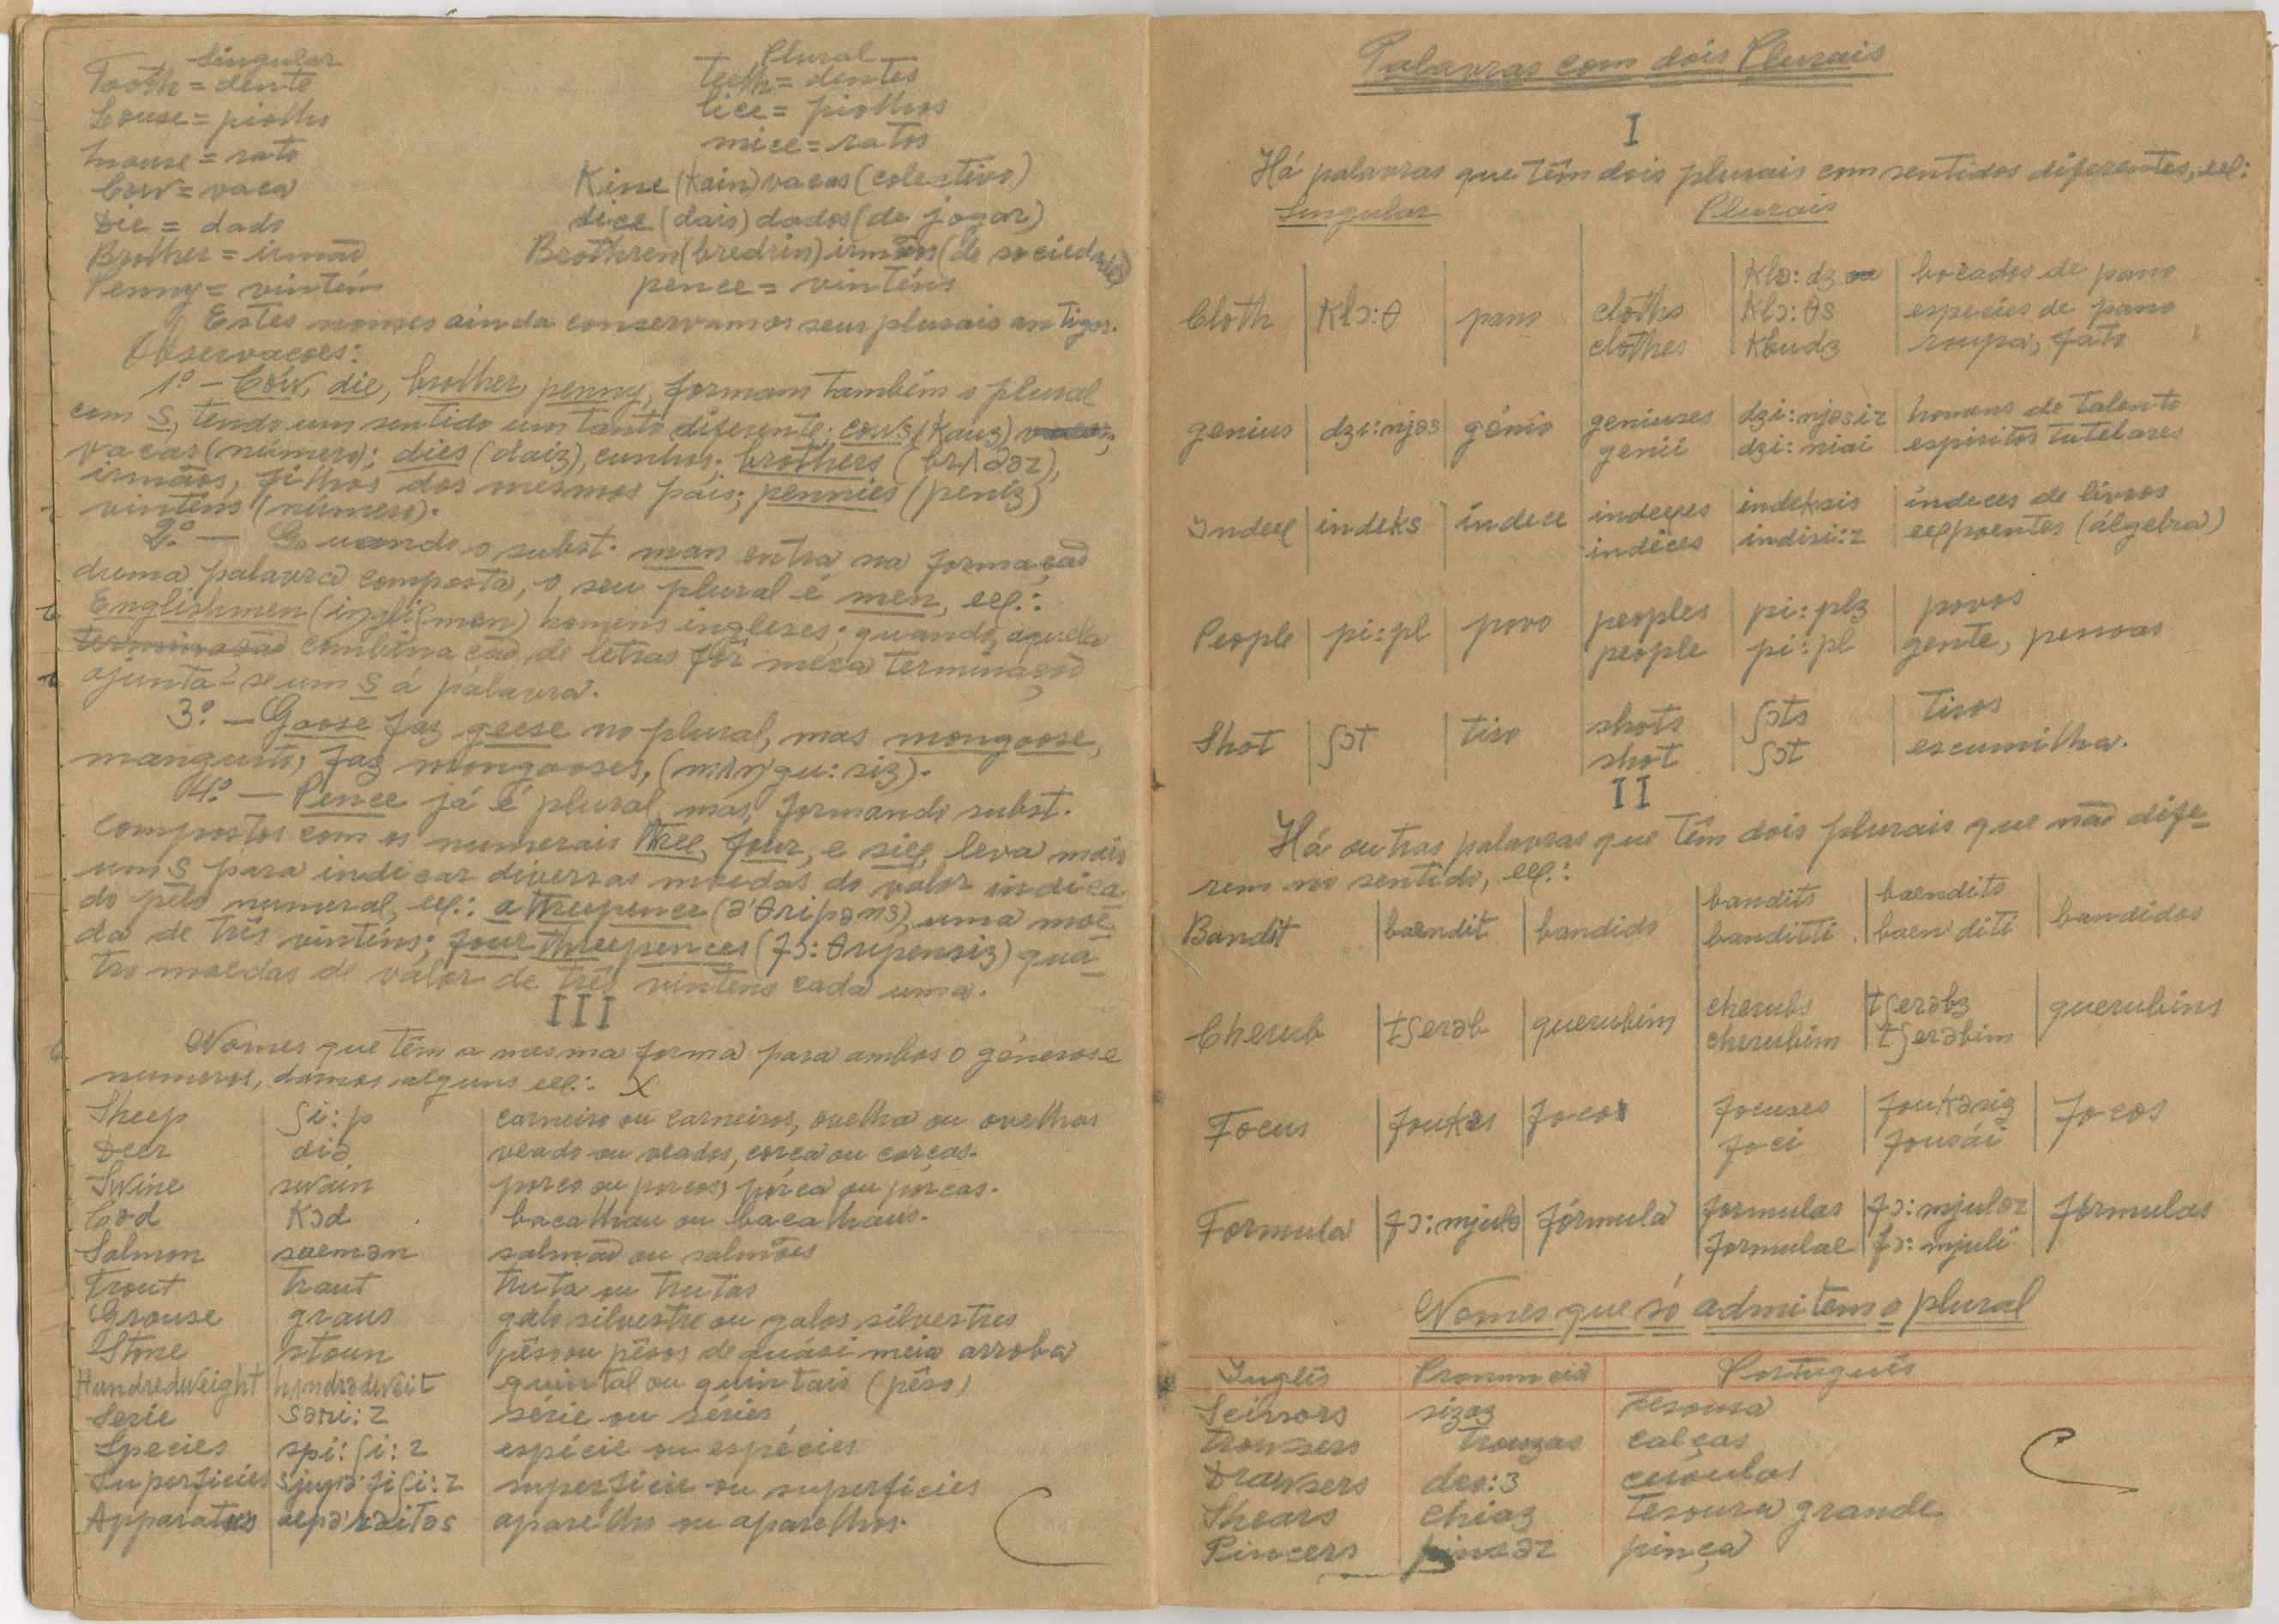 Singular Plural
Tooth = dente teeth = dentes
Louse = piolho lice = piolhos
mouse = rato mice = ratos
Cow = vaca Kine (Kain) vacas (colectivo)
Die = dado dice (dais) dados (de jogar)
Brother = irmão Brethren (bredrin) irmãos (de sociedade)
Penny = vintém pence = vinténs
Estes nomes ainda conservam os seus plurais antigos.
Observacoes:
1º - Cow, die, brother, penny, formam também o plural
com s, tendo um sentido um tanto diferente: cows (Kauz)
vacas (número); dies (daiz), cunhos; brothers (brʌðəz),
irmãos, filhos dos mesmos páis; pennies (peniz)
vinténs (número).
2º - Quando o subst. man entra na formação
duma palavra composta, o seu plural é men, ex.:
Englishmen (iŋgliʃmən) homens ingleses; quando, aquela
terminação combinação de letras fôr mera terminação
ajunta-se um s á palavra.
3º - Goose faz geese no plural, mas mongoose,
mangusto, faz mongooses, (mʌŋgu:siz).
4º - Pence já é plural, mas, formando subst.
compostos com os numerais three, four, e six, leva mais
um s para indicar diversas moedas do valor indica-
do pelo numeral, ex.: a threepence (ə'θripəns), uma moe-
da de três vinténs; four threepences (fɔ: θripensiz) qua-
tro moedas de valor de três vinténs cada uma.
III
Nomes que têm a mesma forma para ambos o géneros e
numeros, damos alguns ex.: X
Sheep ʃi:p carneiro ou carneiros, ovelha ou ovelhas
Deer diə veado ou veados, corça ou corças.
Swine swáin porco ou porcos, pórca ou pórcas.
Cod Kɔd bacalhau ou bacalhaus.
Salmon saemən salmão ou salmões
Trout traut truta ou trutas
Grouse graus galo silvestre ou galos silvestres
Stone stoun pêso ou pêsos de quási meia arroba
Hundredweight hʌndrədweit quintal ou quintais (pêso)
Serie səri:z série ou séries
Species spi:ʃi:z espécie ou espécies
Superficies sjupə'fiʃi:z superfície ou superfícies
Apparatus aepə'reitəs aparelho ou aparelhos.
Palavras com dois Plurais
I
Há palavras que têm dois plurais com sentidos diferentes, ex:
Singular Plurais
Cloth Klɔ:θ pano cloths Klɔ:dz ou bocados de pano
Klɔ:θs especies de pano
clothes Kloudz roupa, fato
genius dzi:njəs génio geniuses dzi:njəsiz homens de talento
genii dzi:niai espiritos tutelares
Index indeks índece indexes indeksis índeces de livros
indices indisi:z expoentes (álgebra)
People pi:pl povo peoples pi:plz povos
people pi:pl gente, pessoas
Shot ʃɔt tiro shots ʃɔts tiros
shot ʃɔt escumilha.
II
Há outras palavras que têm dois plurais que não dife-
rem no sentido, ex.:
Bandit baendit bandido bandits baendits bandidos
banditti baen'diti
Cherub tʃerəb querubim cherubs tʃerəbz querubins
cherubim tʃerəbim
Focus foukəs foco focuses foukəsiz focos
foci fousái
Formula fɔ:mjulə fórmula formulas fɔ:mjuləz fórmulas
formulae fɔ:mjuli
Nomes que só admitem o plural
Inglês Pronuncia Português
Scissors sizəz Tesoura
Trousers trouzəs calças
Drawsers dro:z ceroulas
Shears chiəz Tesoura grande
Pincers pinsəz pinça